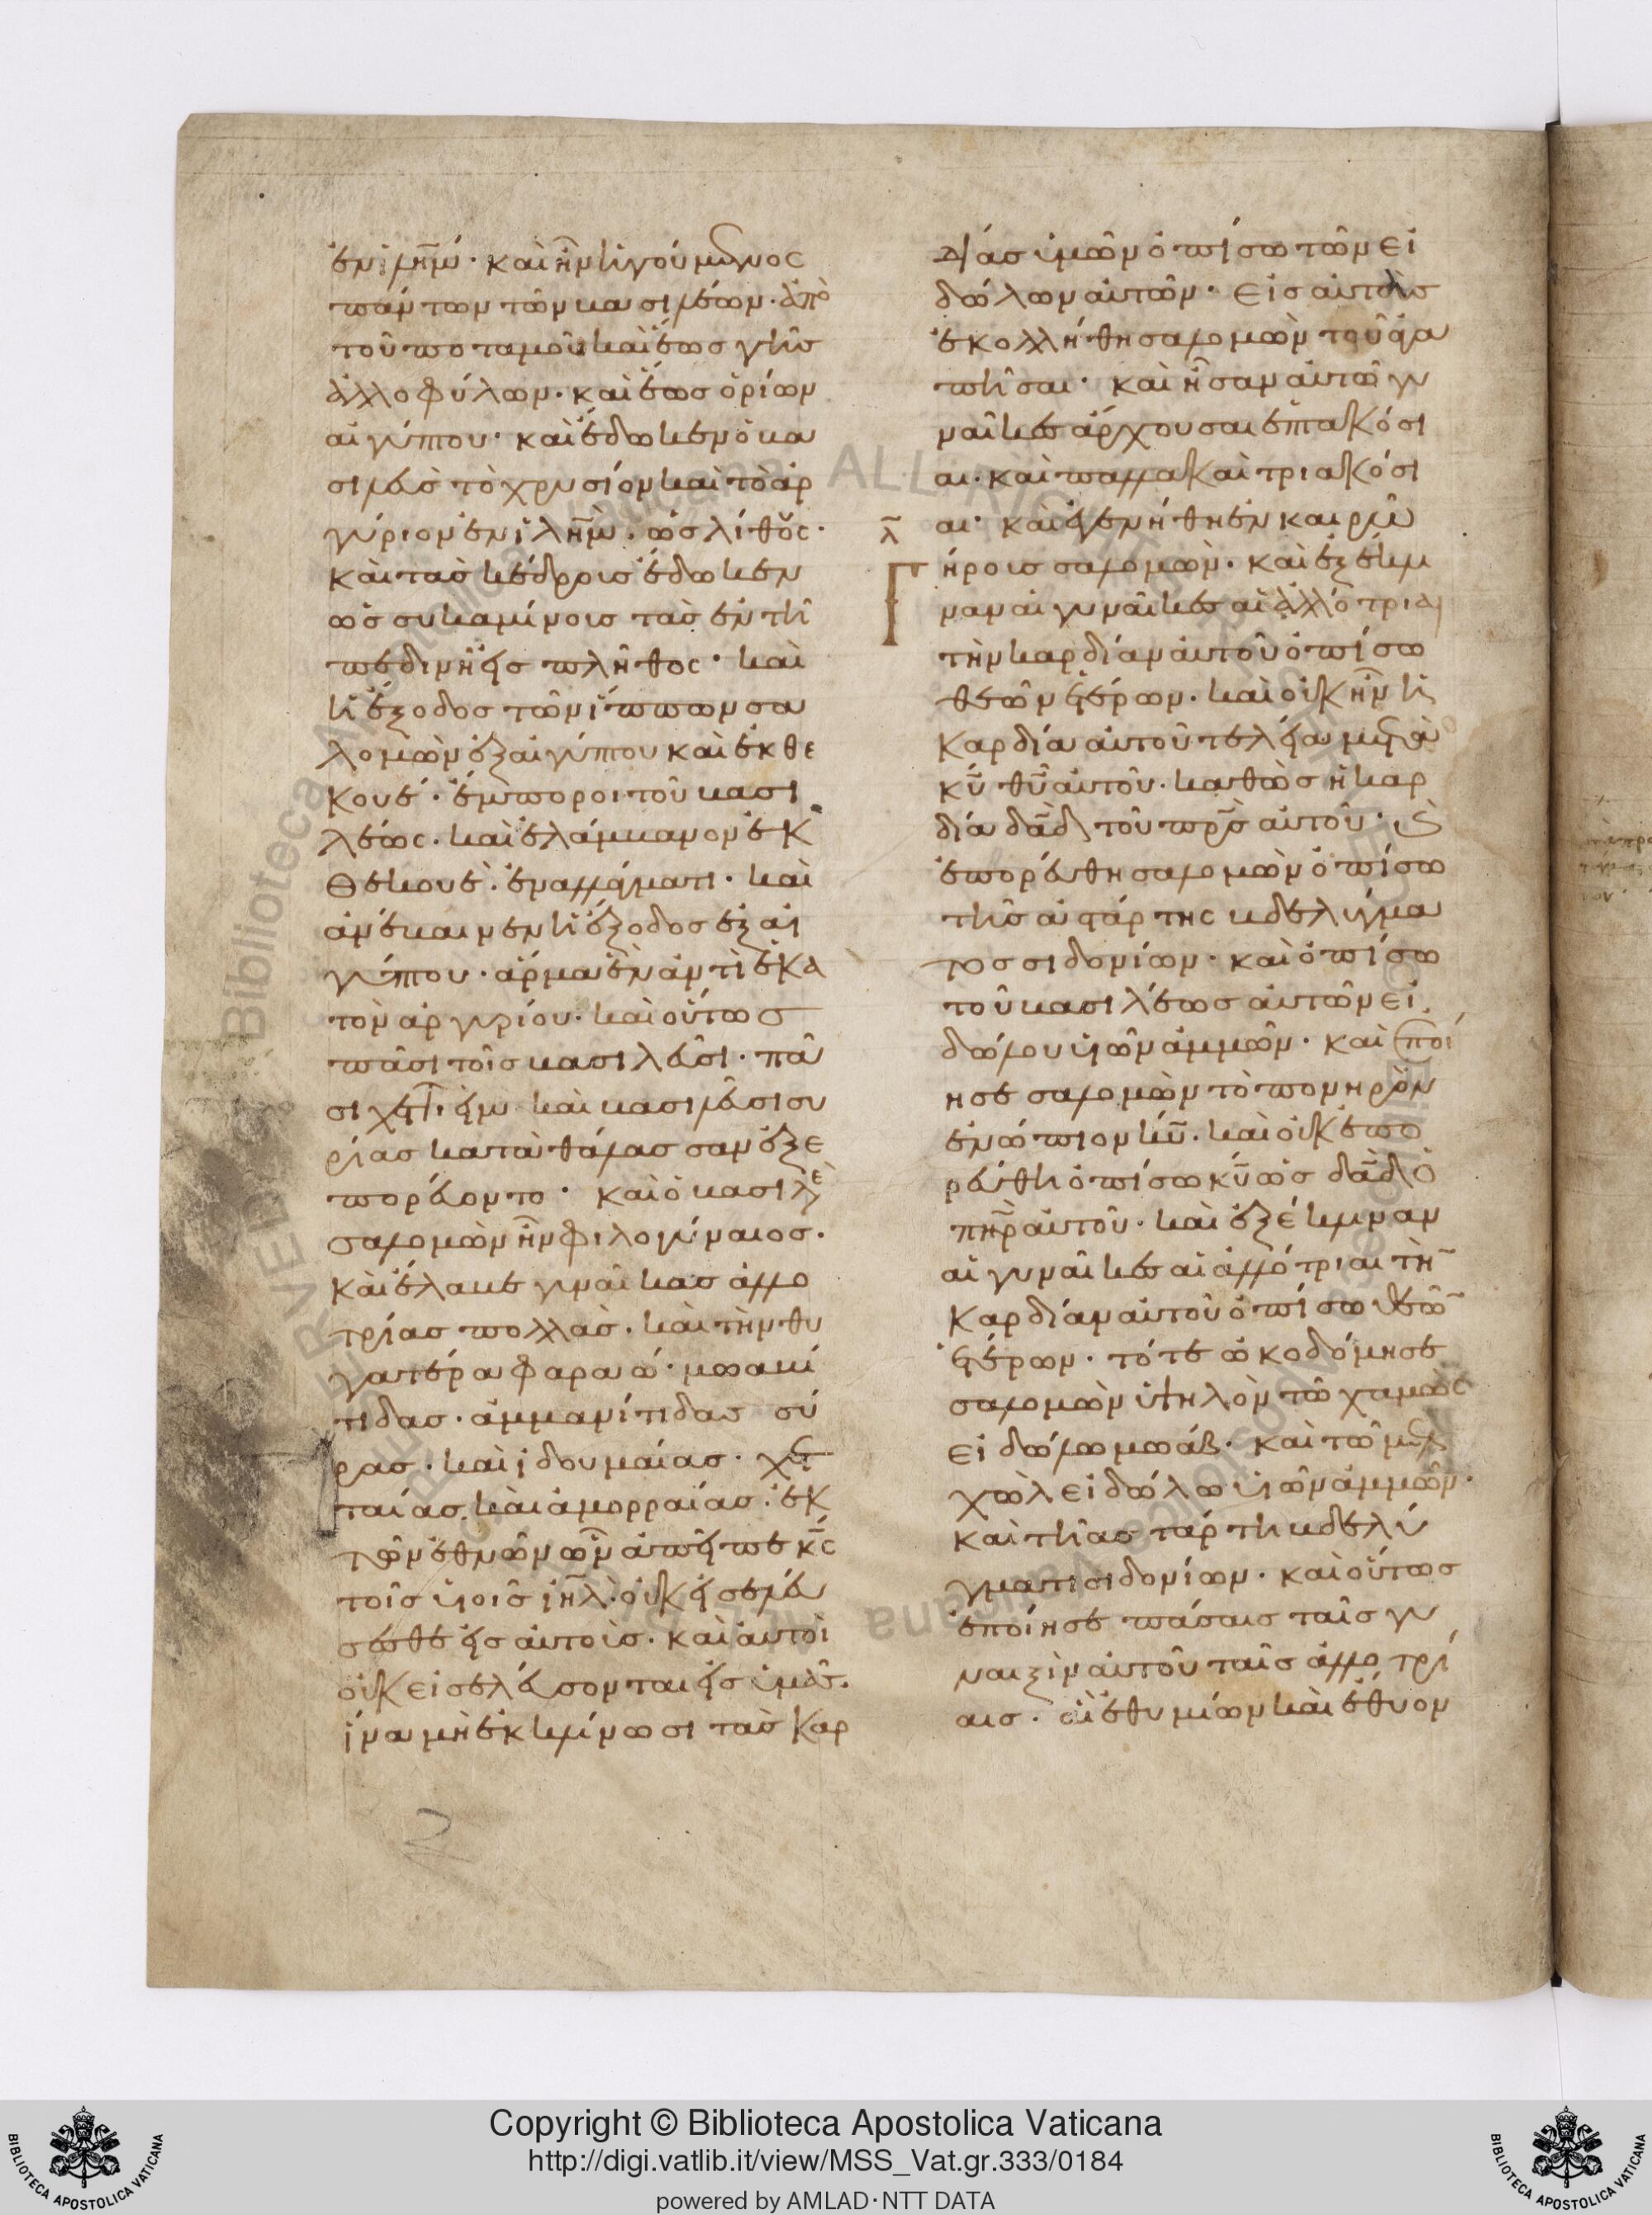 ἐν ἱλη̅μ· καὶ ἦν ἡγούμενος
πάντων τῶν βασιλέων· ἀπὸ
τοῦ ποταμοῦ καὶ ἕως γῆς
ἀλλοφύλων· καὶ ἕως ὁρίων
αἰγύπτου· καὶ ἔδωκεν ὁ βα
σιλεὺς τὸ χρυσίον καὶ τὸ ἀρ
γύριον ἐν ἱλη̅μ· ὡς λίθους·
καὶ τὰς κέδρους ἔδωκεν
ὡς συκαμίνους τὰς ἐν τῆ
πεδινῆ εἰς πλῆθος· καὶ
ἡ ἔξοδος τῶν ἵππων σα
λομὼν ἐξ αἰγύπτου καὶ ἐκ θε
κουέ· ἔμποροι τοῦ βασι
λέως· καὶ ἐλάμβανον ἐκ
θεκουὲ· ἐν ἀλλάγματι· καὶ
ἀνέβαινεν ἡ ἔξοδος ἐξ αἰ
γύπτου· ἅρμα ἓν ἀντὶ ἑκα
τὸν ἀργυρίου· καὶ οὕτως
πᾶσι τοῖς βασιλεῦσι· πᾶ
σι χεττιεὶμ καὶ βασιλεῦσι συ
ρίας κατὰ θάλασσαν ἐξε
πορεύοντο· καὶ ὁ βασιλεὺ
σαλομὼν ἦν φιλογύναιος·
καὶ ἔλαβε γυναῖκας ἀλλο
τρίας πολλὰς· καὶ τὴν θυ
γατέρα φαραώ· μωαβί
τιδας· ἀμμανίτιδας σύ
ρας· καὶ ἰδουμαίας· χετ
ταίας καὶ ἀμορραίας· ἐκ
τῶν ἐθνῶν ὧν ἀπεῖπε κ̅ς
τοῖς υἱοῖς ι̅ηλ· οὐκ εἰσελεύ
σεσθε εἰς αὐτοὺς· καὶ αὐτοὶ
οὐκ εἰσελεύσονται εἰς ὑμᾶς·
ἵνα μὴ ἐκκλίνωσι τὰς καρ
δίας ὑμῶν ὀπίσω τῶν εἰ
δώλων αὐτῶν· εἰς αὐτοὺς
ἐκολλήθη σαλομὼν τοῦ ἀγα
πῆσαι· καὶ ἦσαν αὐτῶ γυ
ναῖκες ἄρχουσαι ἑπτακόσι
αι· καὶ παλλακαὶ τριακόσι
λ̅ αι· καὶ ἐγενήθη ἐν καιρῶ
γήρους σαλομὼν· καὶ ἐξέκλι
ναν αἱ γυναῖκες αἱ ἀλλότριαι
τὴν καρδίαν αὐτοῦ ὀπίσω
θεῶν ἑτέρων· καὶ οὐκ ἦν ἡ
καρδία αὐτοῦ τελεία μετὰ
κ̅υ θ̅υ αὐτοῦ· καθὼς ἡ καρ
δία δα̅δ τοῦ πρ̅ς αὐτοῦ· καὶ
ἐπορεύθη σαλομὼν ὀπίσω
τῆς ἀστάρτης βδελύγμα
τος σιδονίων· καὶ ὀπίσω
τοῦ βασιλέως αὐτῶν εἰ
δώλου υἱῶν ἀμμῶν· καὶ ἐποί
ησε σαλομὼν τὸ πονηρὸν
ἐνώπιον κ̅υ· καὶ οὐκ ἐπο
ρεύθη ὀπίσω κ̅υ ὡς δα̅δ ὁ
πη̅ρ αὐτοῦ· καὶ ἐξέκλιναν
αἱ γυναῖκες αἱ ἀλλότριαι τὴ̅
καρδίαν αὐτοῦ ὀπίσω θεῶ̅
ἑτέρων· τότε ὠκοδόμησε
σαλομὼν ὑψηλὸν τῶ χαμὼς
εἰδώλω μωάβ· καὶ τῶ μελ
χὼλ εἰδώλω υἱῶν ἀμμῶν·
καὶ τῆ ἀστάρτη βδελύ
γματι σιδονίων· καὶ οὕτως
ἐποίησε πάσαις ταῖς γυ
ναιξὶν αὐτοῦ ταῖς ἀλλοτρί
αις· αἳ ἐθυμίων καὶ ἔθυον
Copyright © Biblioteca Apostolica Vaticana
http://digi.vatlib.it/view/MSS_Vat.gr.333/0184
powered by AMLAD·NTT DATA
BIBLIOTECA APOSTOLICA VATICANA
BIBLIOTECA APOSTOLICA VATICANA